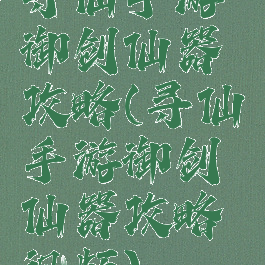 寻仙手游
御创仙器
攻略(寻仙
手游御创
仙器攻略
视频)